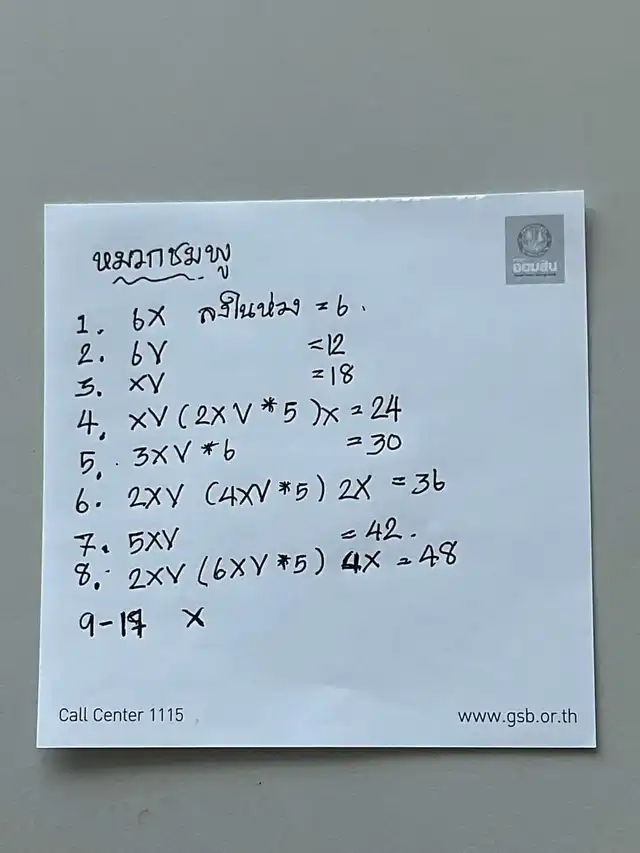 ออมสิน
หมวกชมพู
1. 6X ลงในห่วง = 6.
2. 6V =12
3. XV =18
4. XV (2XV*5)X = 24
5. 3XV*6 = 30
6. 2XV (4XV*5) 2X = 36
7. 5XV = 42.
8. 2XV (6XV*5) 4X = 48
9-17 X
Call Center 1115 www.gsb.or.th